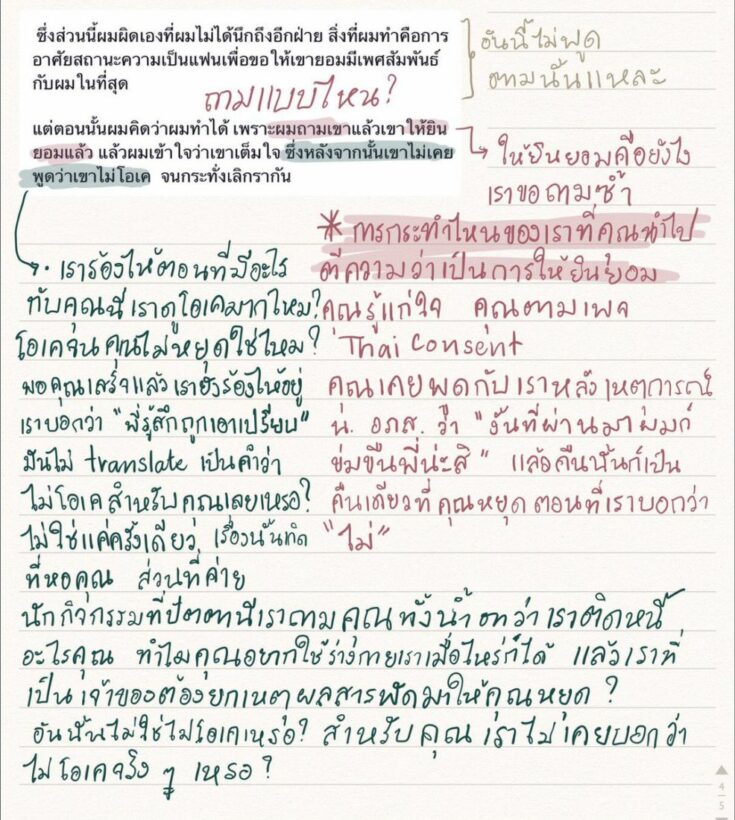 ซึ่งส่วนนี้ผมผิดเองที่ผมไม่ได้นึกถึงอีกฝ่าย สิ่งที่ผมทำคือการ
อาศัยสถานะความเป็นแฟนเพื่อขอให้เขายอมมีเพศสัมพันธ์
กับผมในที่สุด
ถามแบบไหน?
แต่ตอนนั้นผมคิดว่าผมทำได้ เพราะผมถามเขาแล้วเขาให้ยิน
ยอมแล้ว แล้วผมเข้าใจว่าเขาเต็มใจ ซึ่งหลังจากนั้นเขาไม่เคย
พูดว่าเขาไม่โอเค จนกระทั่งเลิกรากัน
อันนี้ไม่พูด
ตามนั้นแหละ
ให้ยินยอมคือยังไง
เราขอถามซ้ำ
* การกระทำไหนของเราที่คุณนำไป
ตีความว่าเป็นการให้ยินยอม
คุณรู้แก่ใจ คุณตามเพจ
Thai Consent
คุณเคยพูดกับเราหลังเหตุการณ์
น. อภส. ว่า "งั้นที่ผ่านมาผมก็
ข่มขืนพี่น่ะสิ" แล้วคืนนั้นก็เป็น
คืนเดียวที่คุณหยุดตอนที่เราบอกว่า
"ไม่"
เราร้องไห้ตอนที่มีอะไร
กับคุณนี่เราดูโอเคมากไหม?
โอเคจนคุณไม่หยุดใช่ไหม?
พอคุณเสร็จแล้วเรายังร้องไห้อยู่
เราบอกว่า "พี่รู้สึกถูกเอาเปรียบ"
มันไม่ translate เป็นคำว่า
ไม่โอเคสำหรับคุณเลยเหรอ?
ไม่ใช่แค่ครั้งเดียว เรื่องนั้นเกิด
ที่หอคุณ ส่วนที่ค่าย
นักกิจกรรมที่ปัตตานีเราถามคุณทั้งน้ำตาว่าเราติดหนี้
อะไรคุณ ทำไมคุณอยากใช้ร่างกายเราเมื่อไหร่ก็ได้ แล้วเราที่
เป็นเจ้าของต้องยกเหตุผลสารพัดมาให้คุณหยุด?
อันนั้นไม่ใช่ไม่โอเคเหรอ? สำหรับคุณ เราไม่เคยบอกว่า
ไม่โอเคจริง ๆ เหรอ?
4
5